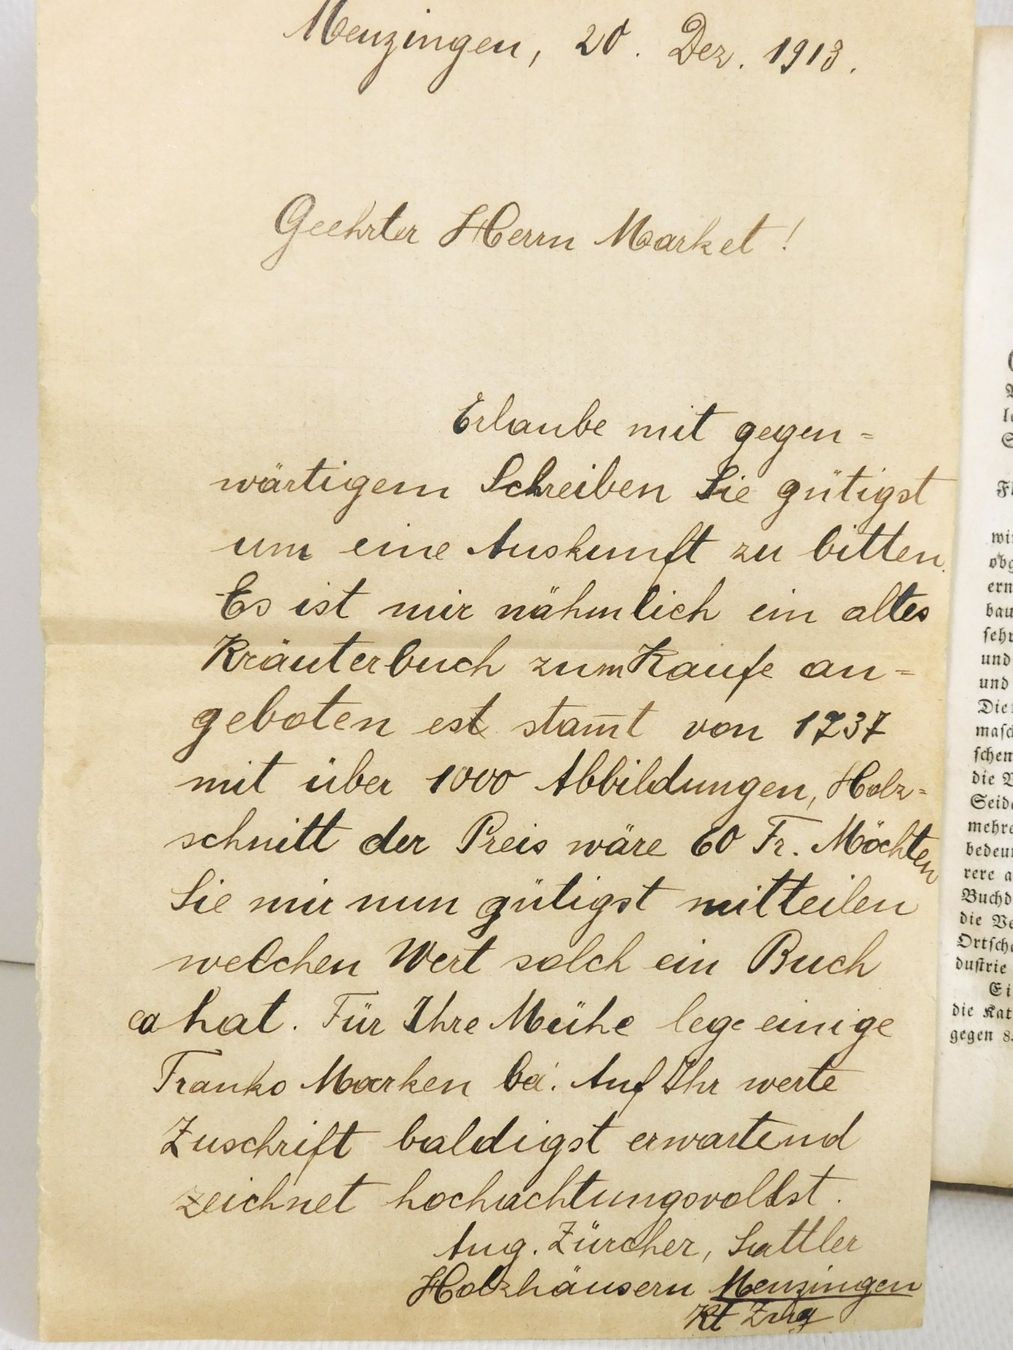 Menzingen, 20. Dez. 1913.
Geehrter Herrn Market!
Erlaube mit gegen=
wärtigem Schreiben Sie gütigst
um eine Auskunft zu bitten.
Es ist mir nähmlich ein altes
Kräuterbuch zum Kaufe an=
geboten est stam̄t von 1737
mit über 1000 Abbildungen, Holz=
schnitt der Preis wäre 60 Fr. Möchten
Sie mir nun gütigst mitteilen
welchen Wert solch ein Buch
ca hat. Für Ihre Mühe lege einige
Franko Marken bei. Auf Ihr werte
Zuschrift baldigst erwartend
zeichnet hochachtungsvollst.
Aug. Zürcher, Sattler
Holzhäusern Menzingen
Kt Zug
wi
obg
ern
bau
sehr
und
und
Die
masc
schen
die V
Seid
mehre
bedeu
rere a
Buchd
die Ve
Ortsch
dustrie
Ei
die Kat
gegen 8